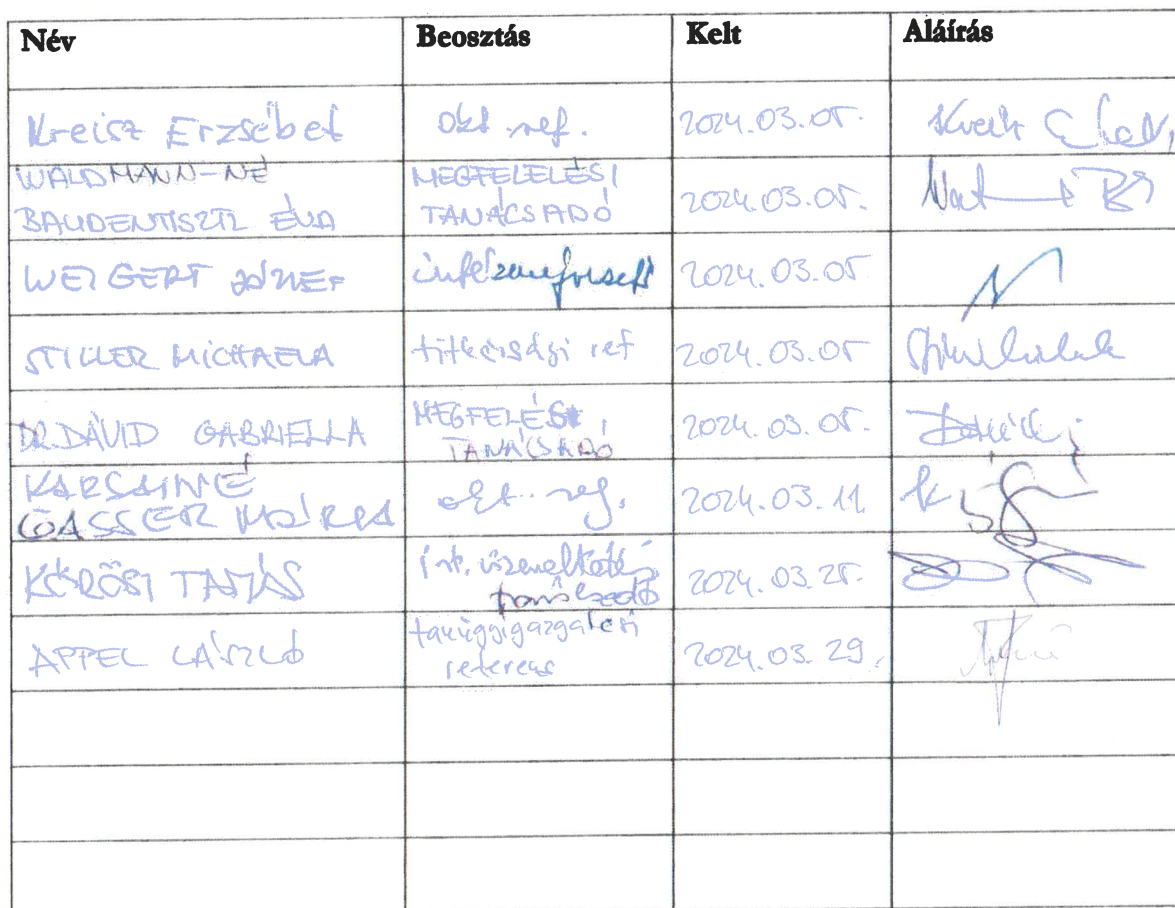 Név Beosztás Kelt Aláírás
Kreisz Erzsébet okt ref. 2024.03.05.
WALDMANN-NÉ MEGFELELÉSI
BAUDENTISZTL ÉVA TANÁCSADÓ 2024.03.05.
WEIGERT JÓZSEF 2024.03.05
STILLER MICHAELA titkársági ref 2024.03.05
DR. DÁVID GABRIELLA MEGFELÉSI TANÁCSADÓ 2024.03.05.
KARSAINÉ
GASSER MÁRIA okt. ref. 2024.03.11.
KŐRÖSI TAMÁS int. 2024.03.25.
APPEL LÁSZLÓ tanügyigazgatási
referens 2024.03.29.